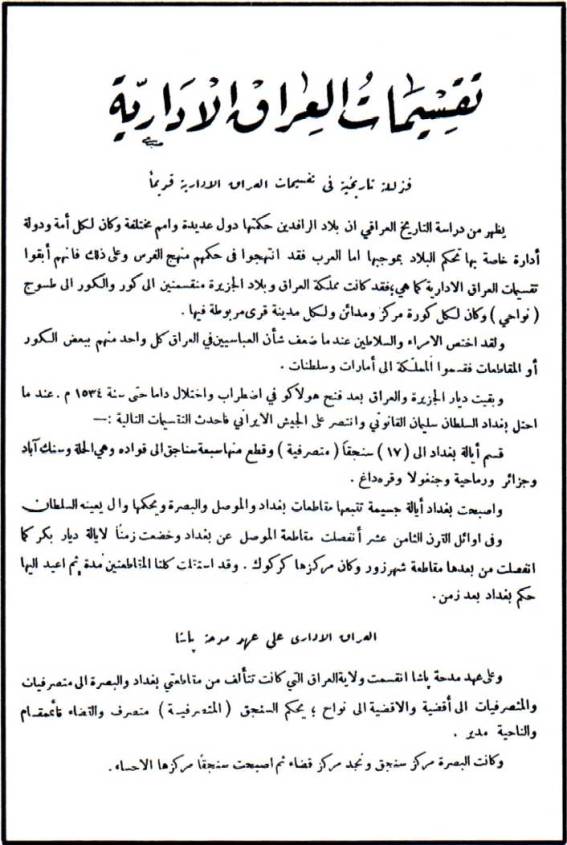 تقسيمات العراق الادارية
فزلكة تاريخية في تقسيمات العراق الادارية قديماً
يظهر من دراسة التاريخ العراقي ان بلاد الرافدين حكمتها دول عديدة وامم مختلفة وكان لكل أمة ودولة
أدارة خاصة بها تحكم البلاد بموجبها اما العرب فقد انتهجوا في حكمهم منهج الفرس وعلى ذلك فانهم أبقوا
تقسيمات العراق الادارية كما هي؛ فقد كانت مملكة العراق وبلاد الجزيرة منقسمتين الى كور والكور الى طسوج
( نواحي ) وكان لكل كورة مركز ومدائن ولكل مدينة قرى مربوطة فيها .
ولقد اختص الامراء والسلاطين عند ما ضعف شأن العباسيين في العراق كل واحد منهم ببعض الكور
أو المقاطعات فقسموا المملكة الى أمارات وسلطنات .
وبقيت ديار الجزيرة والعراق بعد فتح هولاكو في اضطراب واختلال داما حتى سنة ١٥٣٤ م . عند ما
احتل بغداد السلطان سليمان القانوني وانتصر على الجيش الايراني فاحدث التقسيمات التالية :—
قسم أيالة بغداد الى (١٧) سنجقاً ( متصرفية ) وقطع منها سبعة سناجق الى قواده وهي الحلة وسنك آباد
وجزائر ورماحية وجنغولا وقره داغ .
واصبحت بغداد أيالة جسيمة تتبعها مقاطعات بغداد والموصل والبصرة ويحكمها وال يعينه السلطان
وفى اوائل القرن الثامن عشر أنفصلت مقاطعة الموصل عن بغداد وخضعت زمناً لايالة ديار بكر كما
انفصلت من بعدها مقاطعة شهرزور وكان مركزها كركوك . وقد استقلت كلتا المقاطعتين مدة ثم اعيد اليها
حكم بغداد بعد زمن .
العراق الادارى على عهد مدحة پاشا
وعلى عهد مدحة پاشا انقسمت ولاية العراق التي كانت تتألف من مقاطعتي بغداد والبصرة الى متصرفيات
والمتصرفيات الى أقضية والاقضية الى نواح ؛ يحكم السنجق ( المتصرفيسة ) متصرف والقضاء قائممقام
والناحية مدير .
وكانت البصرة مركز سنجق ونجد مركز قضاء ثم اصبحت سنجقاً مركزها الاحساء .